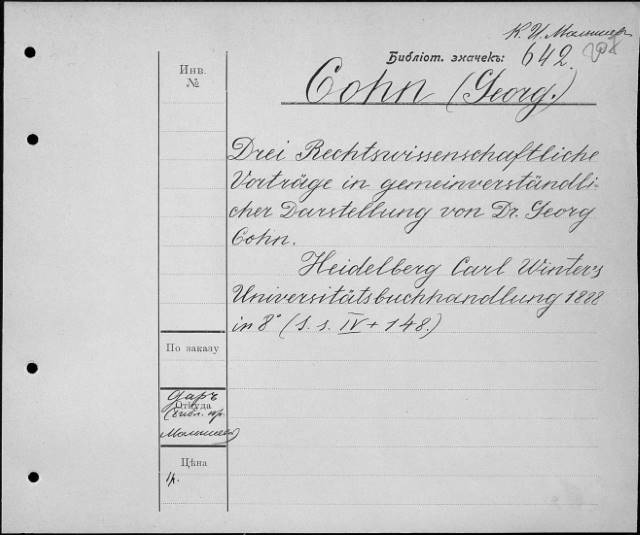 К. И. Малышевъ
Библіот. значекъ: 642.
Инв.
№
Cohn (Georg.)
Drei Rechtswissenschaftliche
Vorträge in gemeinverständli-
cher Darstellung von Dr. Georg
Cohn.
Heidelberg Carl Winter's
Universitätsbuchhandlung 1888
in 8° (S. s. IV + 148.)
По заказу
Откуда
даръ
(библ. пр.
Малышева)
Цѣна
1р.